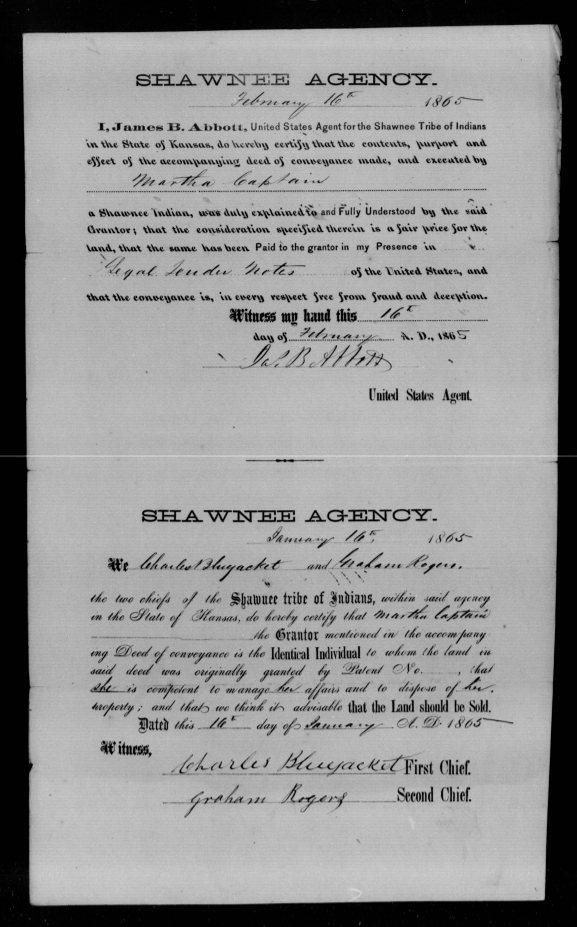 SHAWNEE AGENCY.
February 16th 1865
I, James B. Abbott, United States Agent for the Shawnee Tribe of Indians
in the State of Kansas, do hereby certify that the contents, purport and
effect of the accompanying deed of conveyance made, and executed by
Martha Captain
a Shawnee Indian, was duly explained to and Fully Understood by the said
Grantor; that the consideration specified therein is a fair price for the
land, that the same has been Paid to the grantor in my Presence in
Legal Tender Notes of the United States, and
that the conveyance is, in every respect free from fraud and deception.
Witness my hand this 16th
day of February A. D., 1865
Jas. B Abbott
United States Agent.
SHAWNEE AGENCY.
January 16th, 1865
We Charles Bluejacket and Graham Rogers,
the two chiefs of the Shawnee tribe of Indians, within said agency
in the State of Kansas, do hereby certify that Martha Captain
the Grantor mentioned in the accompany
ing Deed of conveyance is the Identical Individual to whom the land in
said deed was originally granted by Patent No. , that
she is competent to manage her affairs and to dispose of her
property; and that we think it advisable that the Land should be Sold.
Dated this 16th day of January A. D. 1865
Witness,
Charles Bluejacket First Chief.
Graham Rogers Second Chief.